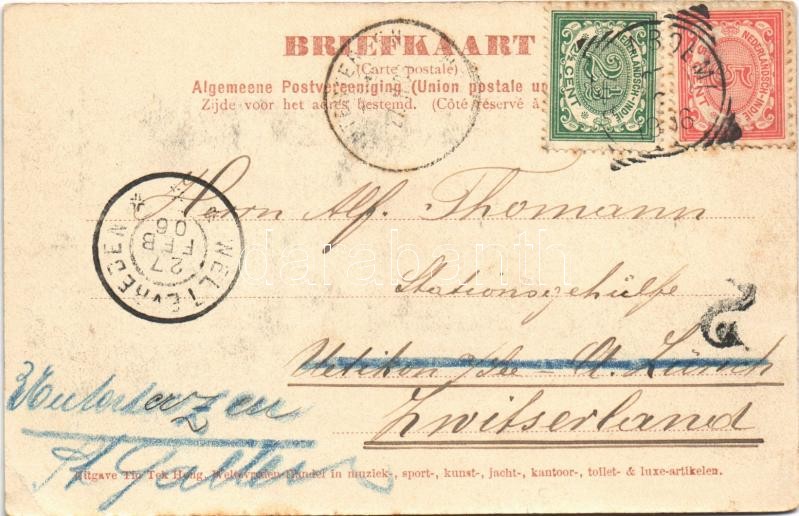 BRIEFKAART
(Carte postale)
Algemeene Postvereeniging (Union postale un
Zijde voor het adres bestemd. (Côté réservé à
NEDERLANDSCH-INDIE
2½ CENT
NEDERLANDSCH-INDIE
5 CENT
WELTEVREDEN
27 FEB 06
Herrn Alf. Thomann
Stationsgehülfe
Uetikon Ct. Zürich
Zwitserland
St Gallen
Uitgave Tio Tek Hong, Weltevreden-Handel in muziek-, sport-, kunst-, jacht-, kantoor-, toilet- & luxe-artikelen.
darabanth